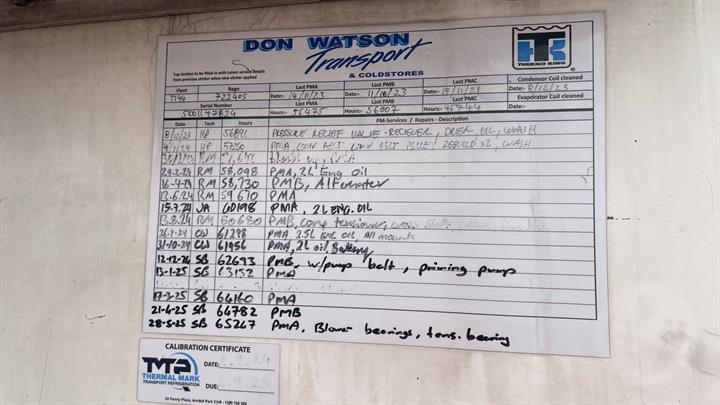 DON WATSON
Transport
& COLDSTORES
THERMO KING
Top Section to be filled in with Latest service details
from previous sticker when new sticker applied
Fleet Rego Last PMA Last PMB Last PMC Condensor Coil cleaned
T144 722405 Date:- 14/11/23 Date:- 11/10/23 Date:- 19/11/21 Date:- 8/12/23
Serial Number Last PMA Last PMB Last PMC Evaporator Coil cleaned
5001147824 Hours:- 56475 Hours:- 56007 Hours:- Date:-
Date Tech Hours PM-Services / Repairs - Description
8/12/23 HP 56891 PRESSURE RELIEF VALVE - RECIEVER, DRIER, OIL, WASH
4/1/24 HP PMA, COMP BELT, REBUILD X2, WASH
RM PMA
29-2-24 RM 58,098 PMA, 2L Eng oil
16-4-24 RM 58,730 PMB, Alternator
13.6.24 RM 59,670 PMA
15.7.24 JA 60198 PMA, 2L ENG. OIL
13.8.24 RM 60680 PMB, Comp tensioner,
CW 61298 PMA, 2.5L ENG OIL, All mounts
31-10-24 CW 61956 PMA, 2L oil, Battery
12-12-24 SB 62693 PMB, w/pump belt, priming pump
13-1-25 SB 63132 PMA
17-3-25 SB 64160 PMA
21-4-25 SB 64782 PMB
28-5-25 SB 65247 PMA, Blower bearings, tens. bearing
CALIBRATION CERTIFICATE
TMTR
THERMAL MARK
TRANSPORT REFRIGERATION
DATE:
DUE: